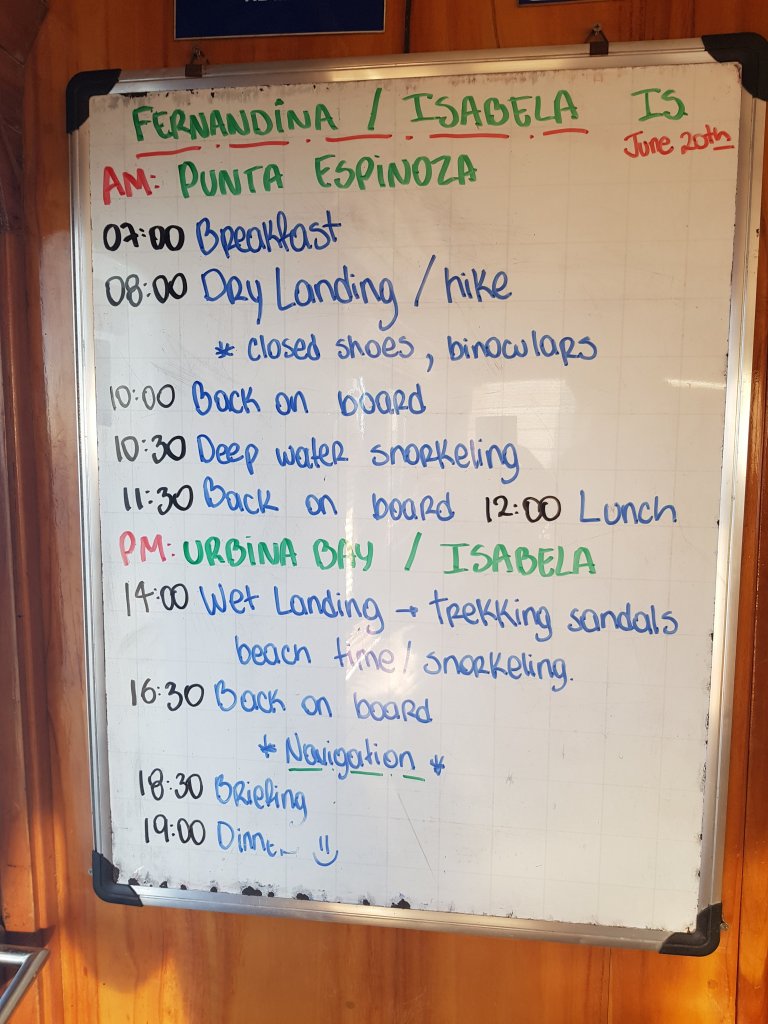 FERNANDINA / ISABELA IS
June 20th
AM: PUNTA ESPINOZA
07:00 Breakfast
08:00 Dry Landing / hike
* closed shoes, binoculars
10:00 Back on board
10:30 Deep water snorkeling
11:30 Back on board 12:00 Lunch
PM: URBINA BAY / ISABELA
14:00 Wet Landing → trekking sandals
beach time / snorkeling.
16:30 Back on board
* Navigation *
18:30 Briefing
19:00 Dinner